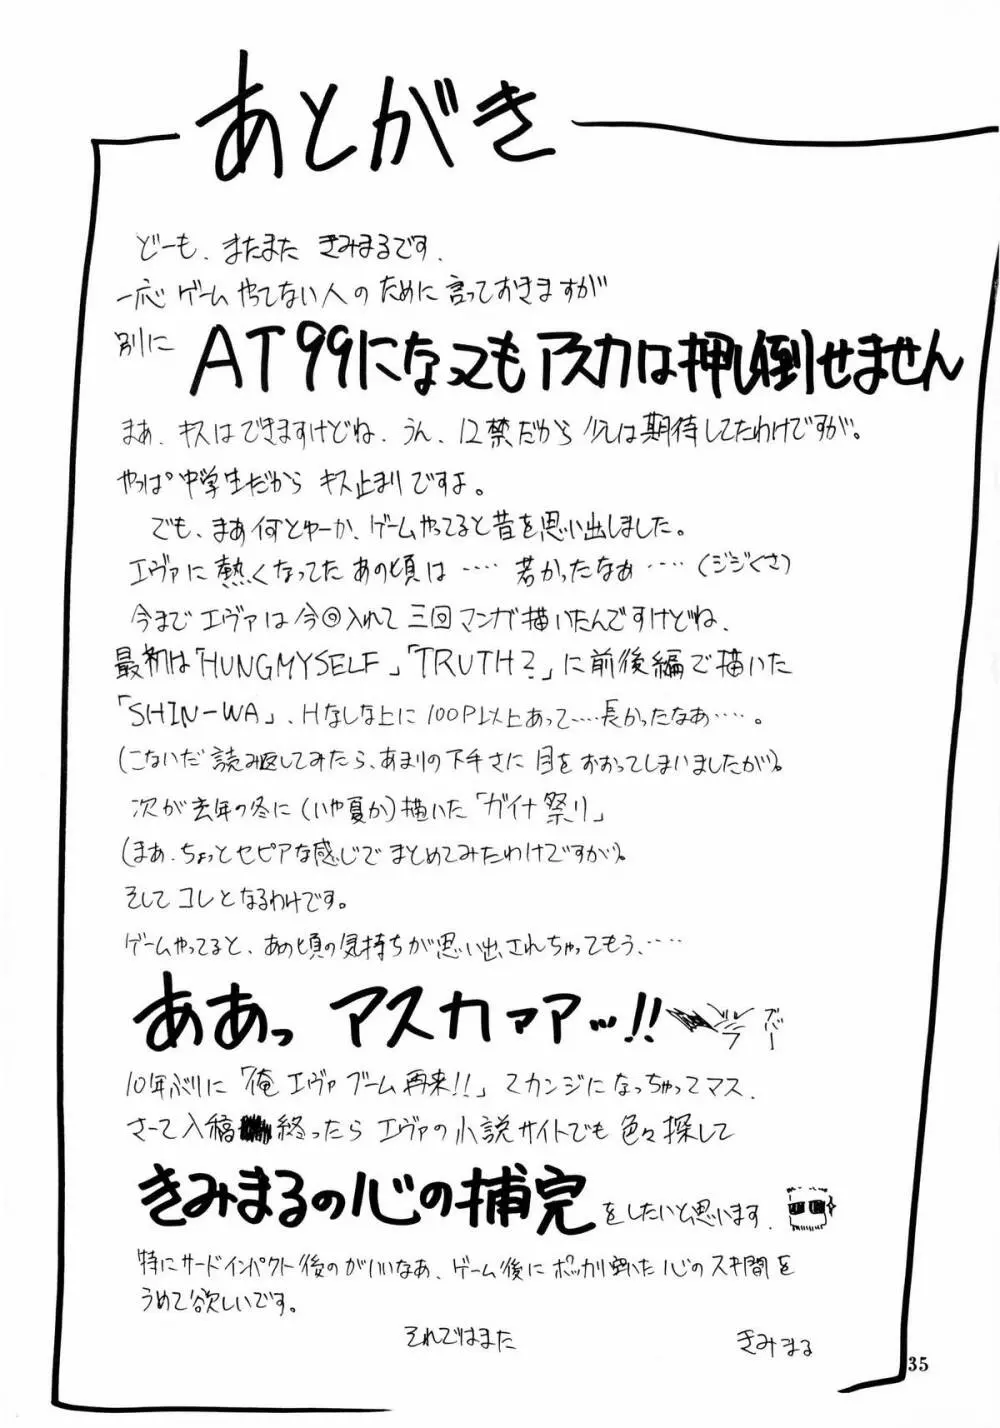 あとがき
どーも、またまた きみまるです.
一応ゲームやってない人のために言っておきますが
別に AT99になってもアスカは押し倒せません
まあ、キスはできますけどね、うん、12禁だから少しは期待してたわけですが。
やっぱ中学生だから キス止まりですよ。
でも、まあ何とゆーか、ゲームやってると昔を思い出しました。
エヴァに熱くなってた あの頃は‥‥ 若かったなぁ‥‥(ジジくさ)
今まで エヴァは今回入れて 三回マンガ描いたんですけどね、
最初は「HUNGMYSELF」「TRUTH?」に前後編で描いた
「SHIN-WA」、Hなしな上に 100P以上あって‥‥長かったなあ‥‥。
(こないだ 読み返してみたら、あまりの下手さに 目をおおってしまいましたが)。
次が去年の冬に(いや夏か)描いた「ガイナ祭り」
(まあ、ちょっとセピアな感じで まとめてみたわけですが)。
そして コレとなるわけです。
ゲームやってると、あの頃の気持ちが思い出されちゃってもう、‥‥
ああっ アスカァアッ!! ズバー
10年ぶりに「俺エヴァブーム再来!!」てカンジになっちゃってマス.
さーて入稿 終ったら エヴァの小説サイトでも 色々探して
きみまるの心の補完をしたいと思います.
特にサードインパクト後のがいいなあ、ゲーム後にポッカリ空いた 心のスキ間を
うめて欲しいです。
それではまた
きみまる
35